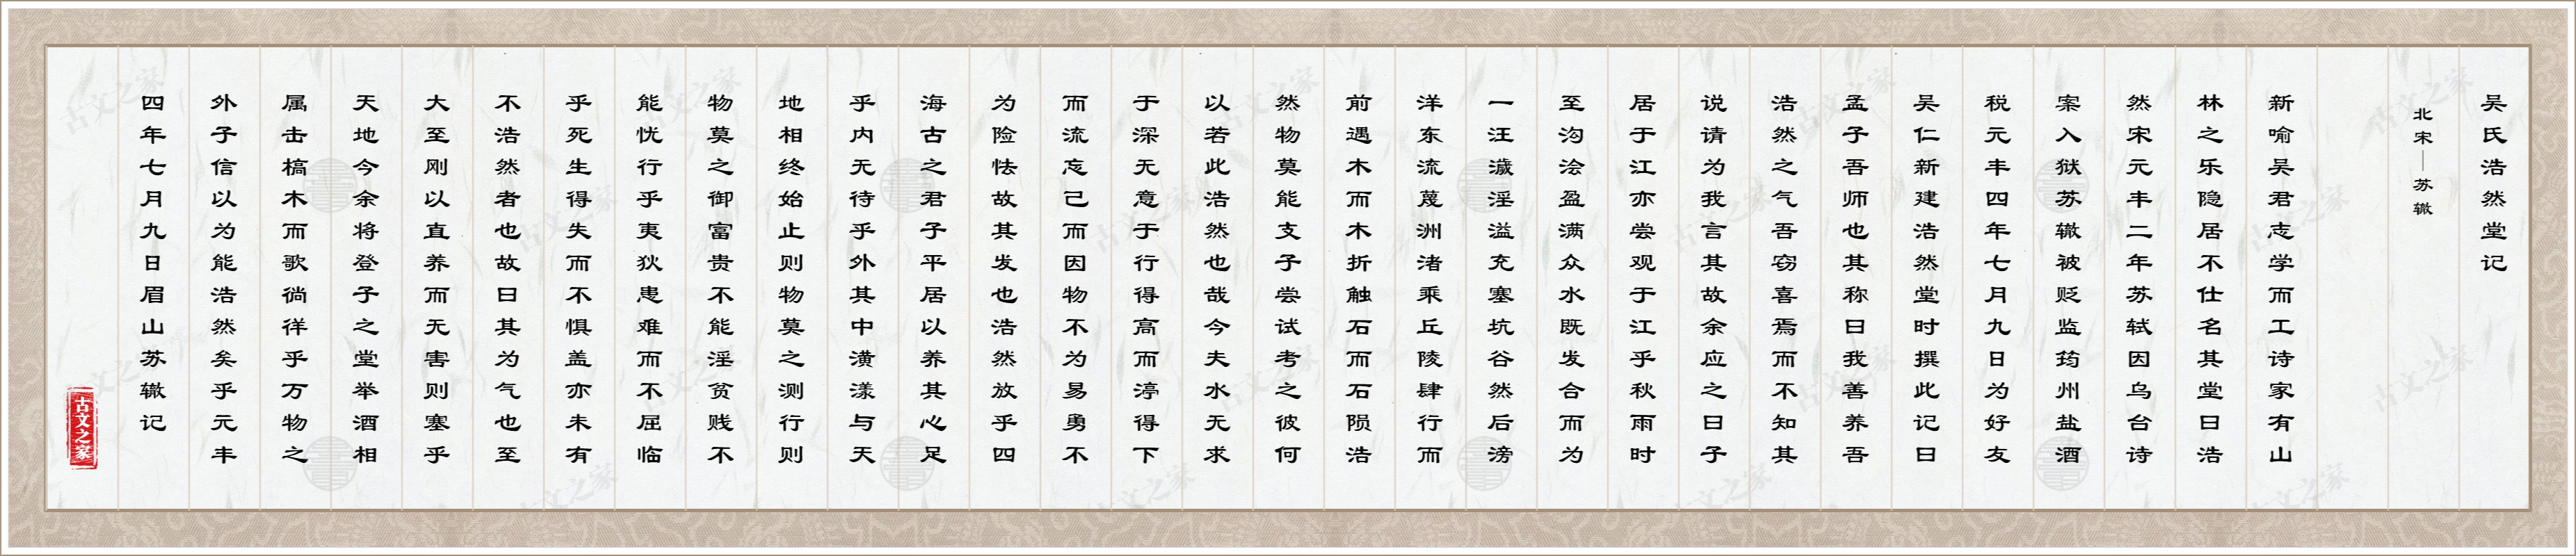 吴氏浩然堂记
北宋｜苏辙
新喻吴君志学而工诗家有山
林之乐隐居不仕名其堂曰浩
然宋元丰二年苏轼因乌台诗
案入狱苏辙被贬监筠州盐酒
税元丰四年七月九日为好友
吴仁新建浩然堂时撰此记曰
孟子吾师也其称曰我善养吾
浩然之气吾窃喜焉而不知其
说请为我言其故余应之曰子
居于江亦尝观于江乎秋雨时
至沟浍盈满众水既发合而为
一汪濊淫溢充塞坑谷然后滂
洋东流蔑洲渚乘丘陵肆行而
前遇木而木折触石而石陨浩
然物莫能支子尝试考之彼何
以若此浩然也哉今夫水无求
于深无意于行得高而渟得下
而流忘己而因物不为易勇不
为险怯故其发也浩然放乎四
海古之君子平居以养其心足
乎内无待乎外其中潢漾与天
地相终始止则物莫之测行则
物莫之御富贵不能淫贫贱不
能忧行乎夷狄患难而不屈临
乎死生得失而不惧盖亦未有
不浩然者也故曰其为气也至
大至刚以直养而无害则塞乎
天地今余将登子之堂举酒相
属击槁木而歌徜徉乎万物之
外子信以为能浩然矣乎元丰
四年七月九日眉山苏辙记
古文之家